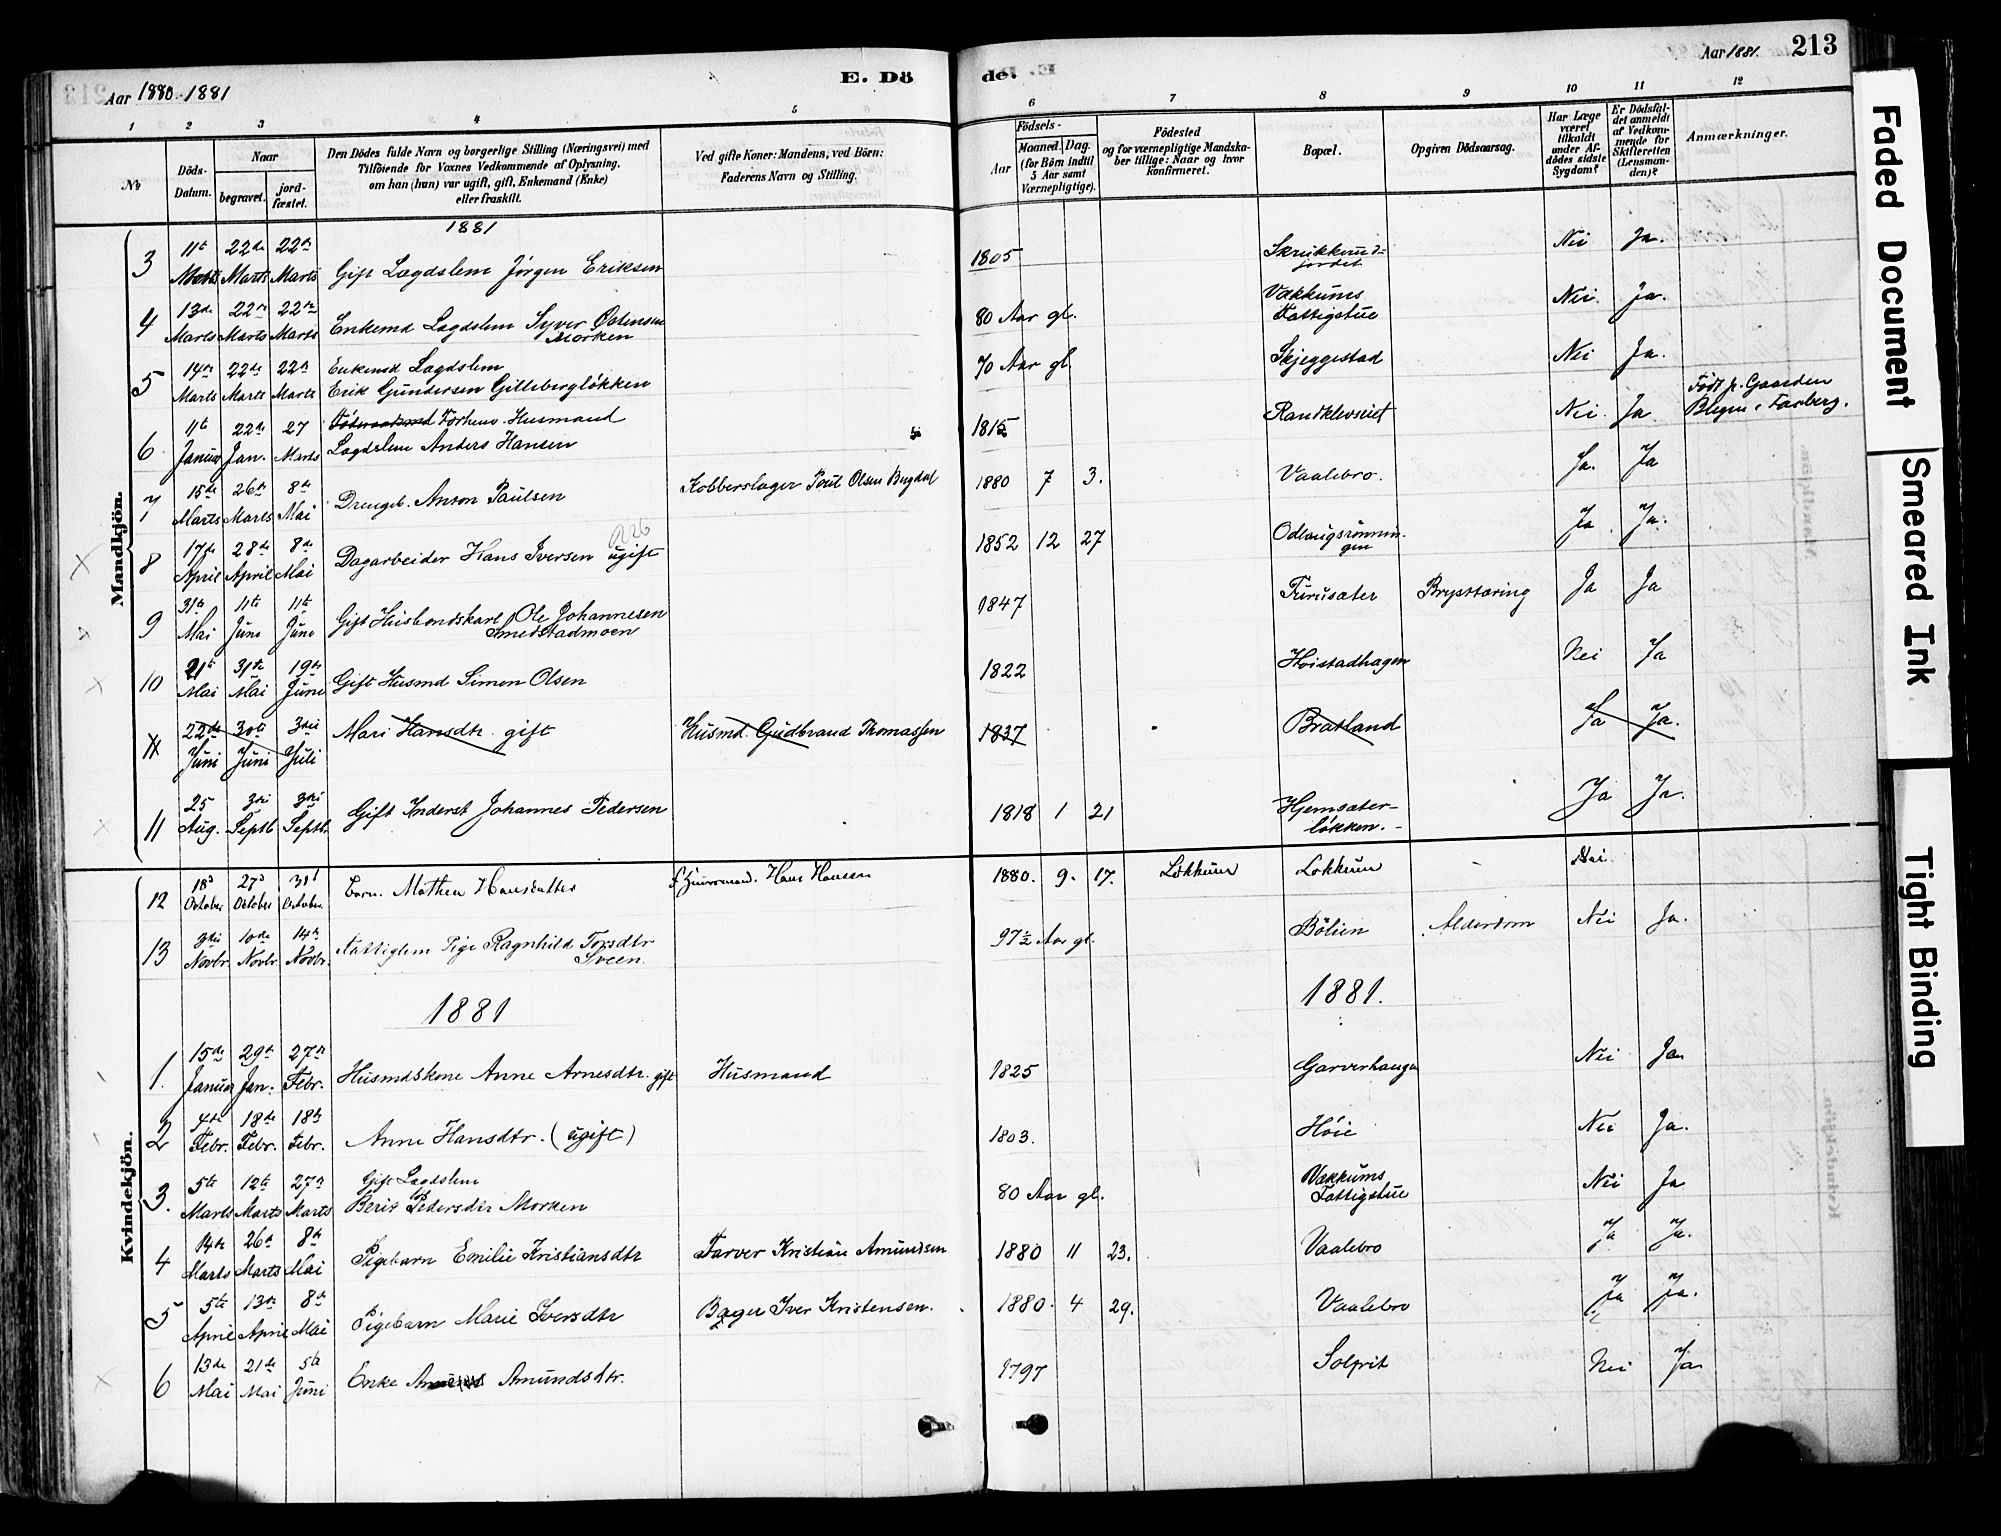 Aar 1880-1881
E. Dö
de.
Aar 1881.
213
1 2 3 4 5 6 7 8 9 10 11 12
No
Döds-Datum.
Naar
begravet.
jord-fæstet.
Den Dödes fulde Navn og borgerlige Stilling (Næringsvei) med
Tilföiende for Voxnes Vedkommende af Oplysning,
om han (hun) var ugift, gift, Enkemand (Enke)
eller fraskilt.
Ved gifte Koner: Mandens, ved Börn:
Faderens Navn og Stilling.
Födsels-
Aar
Maaned. Dag.
(for Börn indtil
5 Aar samt
Værnepligtige).
Födested
og for værnepligtige Mandska-
ber tillige: Naar og hvor
konfirmeret.
Bopæl.
Opgiven Dödsaarsag.
Har Læge
været
tilkaldt
under Af-
dödes sidste
Sygdom?
Er Dödsfal-
det anmeldt
af Vedkom-
mende for
Skifteretten
(Lensman-
den)?
Anmærkninger.
Mandkjön.
1881
3 11te Marts 22de Marts 22de Marts Gift Lægdslem Jørgen Eriksen 1805 Skrukkerud-jordet Nei Ja.
4 13de Marts 22de Marts 22de Marts Enkemd Lægdslem Syver Østensen Morken 80 Aar gl. Vækkums Fattigstue Nei. Ja.
5 14de Marts 22de Marts 22de Marts Enkemd Lægdslem
Erik Gundersen Gillebergløkken 70 Aar gl. Skjeggestad Nei Ja.
6 11te Januar 22de Jan. 27 Marts Forhenv. Husmand
Lægdslem Anders Hansen 1815 Randklevseiet Nei. Ja Født p. Gaarden
Blegen i Faaberg.
7 15de Marts 26de Marts 8de Mai Drengeb. Anton Paulsen Kobberslager Poul Olsen Bugdal 1880 7 3. Vaalebro. Ja. Ja
8 17de April 28de April 8de Mai Dagarbeider Hans Iversen ugift 1852 12 27 Odlaugsrønnin-gen Ja. Ja.
9 31te Mai 11te Juni 11te Juni Gift Husbondskarl Ole Johannesen
Smedstadmoen 1847 Furusæter Brysttæring Ja Ja
10 21te Mai 31te Mai 19de Juni Gift Husmd Simen Olsen 1822 Høistadhagen Nei Ja
11 22de Juni 30te Juni 3die Juli Mari Hansdtr. gift Husmd. Gudbrand Thomassen 1837 Bratland Ja Ja.
11 25 Aug. 3die Septb. 3die Septb. Gift Inderst Johannes Pedersen 1818 1 21 Hjemsæter-løkken. Ja Ja.
12 18d October 27d October 30t October Barn. Mathea Hansdatter Hans Hansen 1880. 9. 17. Løkkum Løkkum Nei.
13 3die Novbr. 10de Novbr. 14de Novbr. Fattiglem Pige Ragnhild Torsdtr
Sveen. 97½ Aar gl. Bölien Alderdom Nei Ja.
1881
1881.
Kvindekjön.
1. 15de Januar 29de Jan. 27de Febr. Husmdskone Anne Arnesdtr. gift Husmand 1825 Garverhaugen Nei Ja.
2 4de Febr. 18de Febr. 18de Febr. Anne Hansdtr. (ugift) 1803. Høie Nei Ja.
3. 5te Marts 12te Marts 27de Marts Gift Lægdslem
Berit Pedersdtr Morken 80 Aar gl. Vækkums Fattigstue Nei Ja
4 14de Marts 26de Marts 8de Mai Pigebarn Emilie Kristiansdtr Farver Kristian Amundsen 1880 11 23. Vaalebro Ja Ja.
5 5te April 13de April 8de Mai Pigebarn Marie Iversdtr Bager Iver Kristensen. 1880. 4 29. Vaalebro Ja Ja.
6 13de Mai 21de Mai 5te Juni Enke Amundsdtr. 1797 Solprit Nei Ja
Faded Document
Smeared Ink
Tight Binding